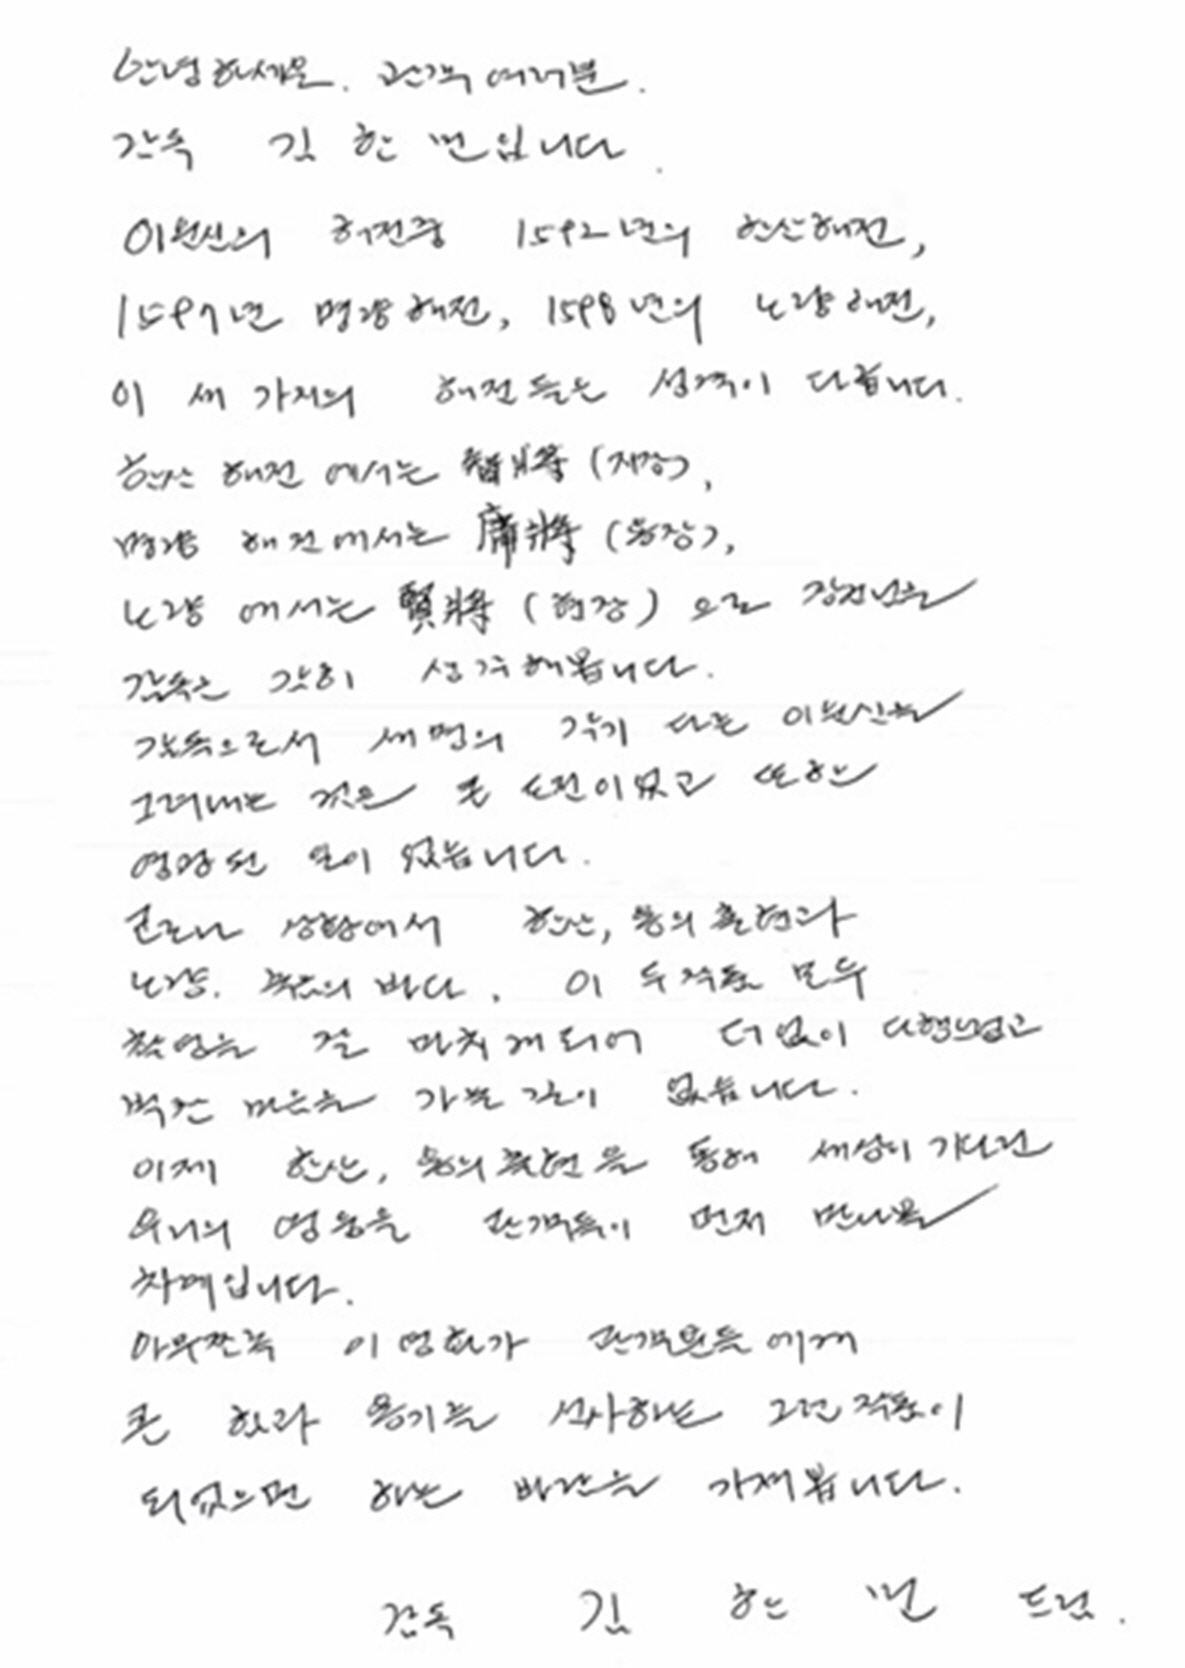 안녕하세요. 관객 여러분.
감독 김한민입니다.
이순신의 해전중 1592년의 한산해전,
1597년 명량해전, 1598년의 노량해전,
이 세 가지의 해전들은 성격이 다릅니다.
한산 해전에서는 智將 (지장),
명량 해전에서는 勇將 (용장),
노량에서는 賢將 (현장) 으로 장군님을
감독은 감히 생각해봅니다.
감독으로서 세명의 각기 다른 이순신을
그려내는 것은 큰 도전이었고 또한
영광된 일이 었습니다.
코로나 상황에서 한산, 용의 출현과
노량. 죽음의 바다. 이 두 작품 모두
촬영을 잘 마치게되어 더없이 다행스럽고
벅찬 마음을 가눌 길이 없습니다.
이제 한산, 용의 출현을 통해 세상이 기다린
우리의 영웅을 관객들이 먼저 만나볼
차례입니다.
아무쪼록 이 영화가 관객분들에게
큰 힘과 용기를 선사하는 그런 작품이
되었으면 하는 바람을 가져봅니다.
감독 김한민 드림.